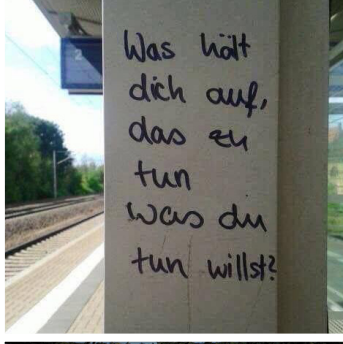 Was hält
dich auf,
das zu
tun
was du
tun willst?
2